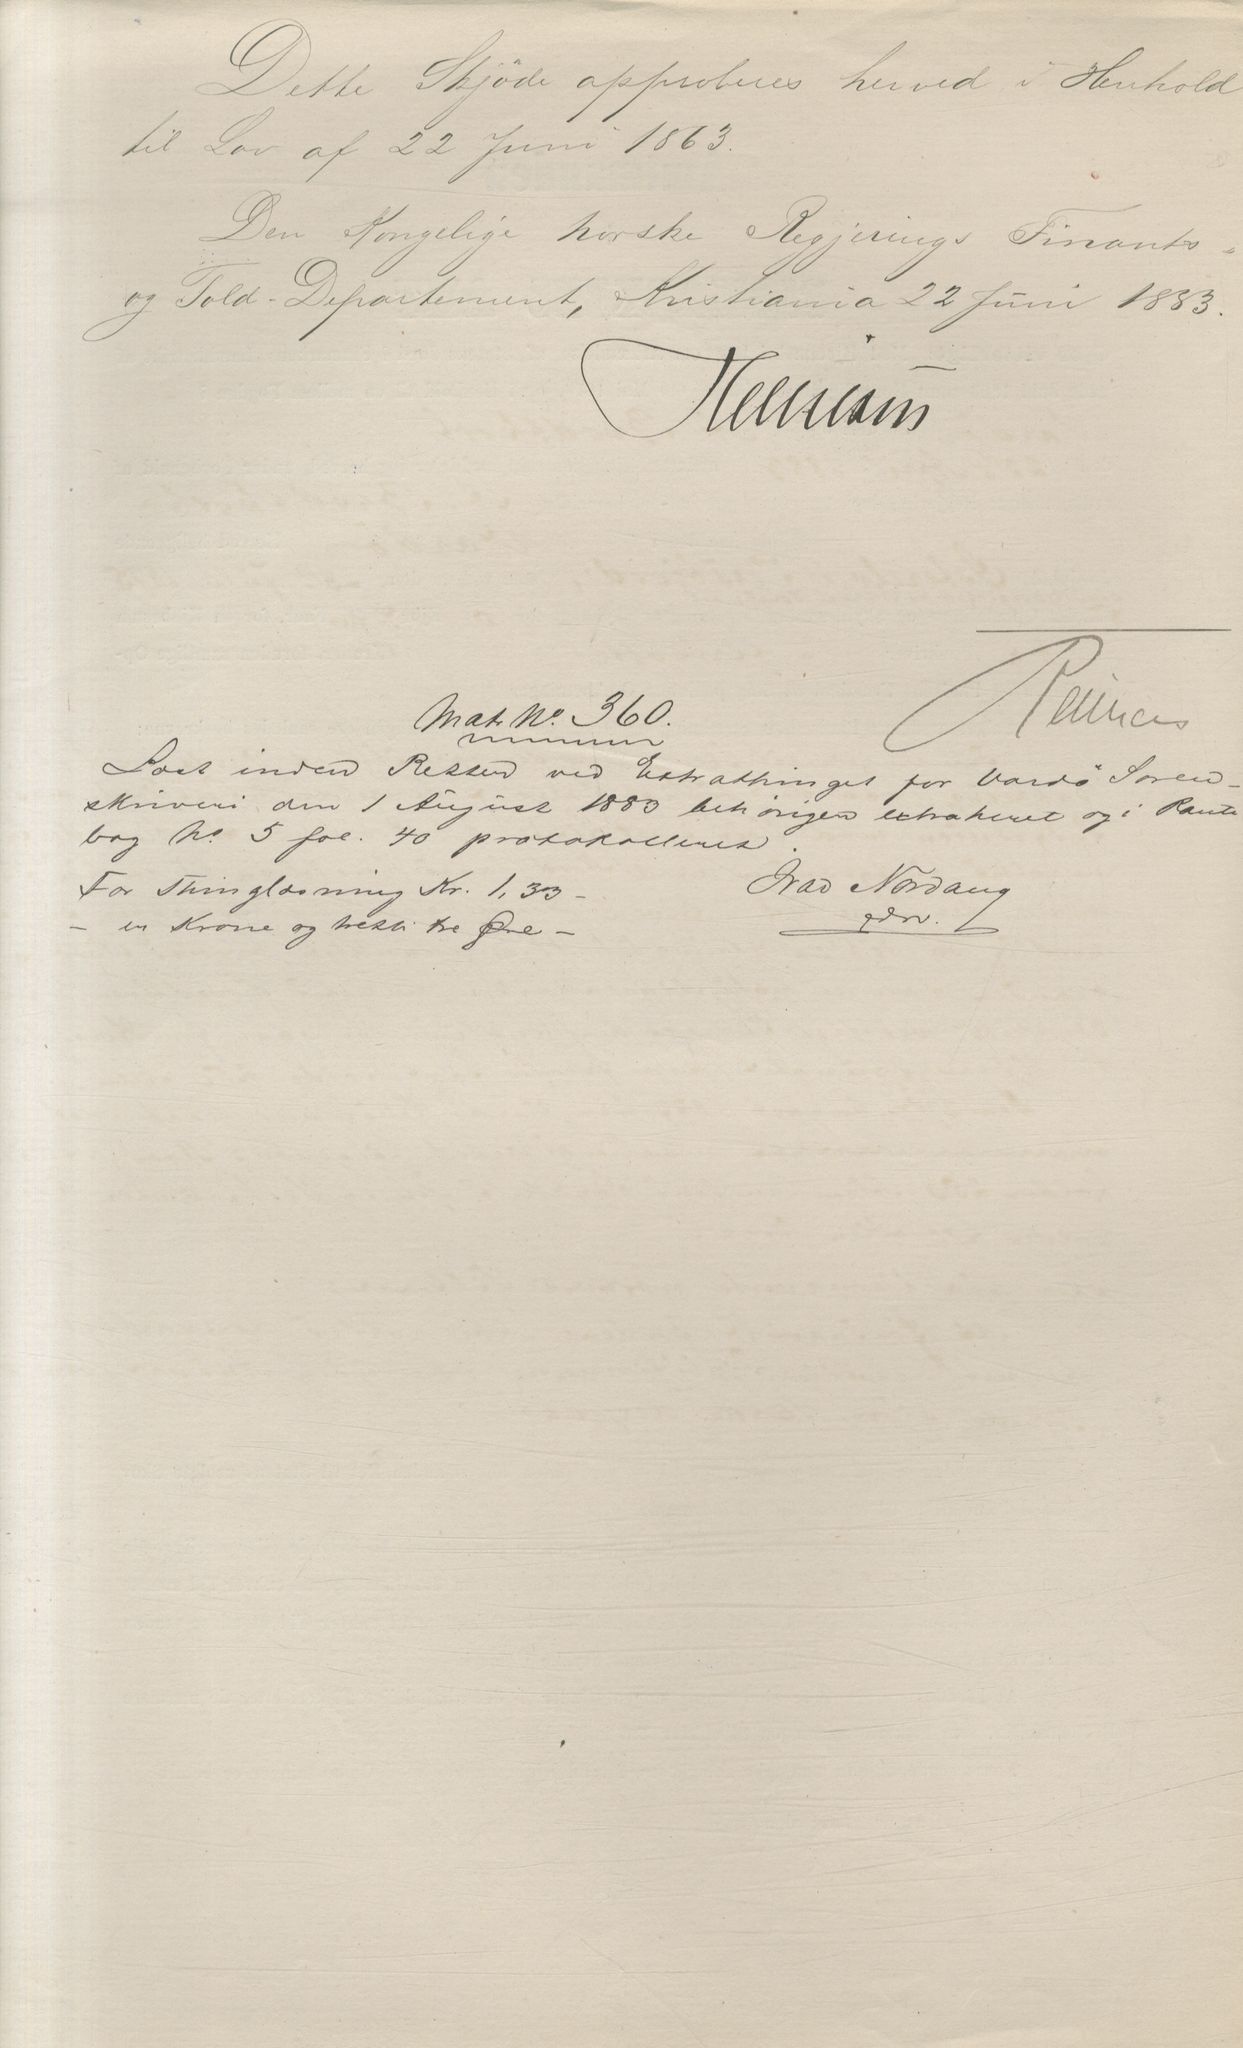 Dette Skjöde approberes herved i Henhold
til Lov af 22 Juni 1863.
Den Kongelige norske Regjerings Finants-
og Told-Departement, Kristiania 22 Juni 1883.
Mat. No. 360.
Læst inden Retten ved Extrathinget for Vardö Soren-
skriveri den 1 August 1883 behörigen extraheret og i Pante
bog No. 5 fol. 40 protokolleret.
For Thinglæsning Kr. 1,33 -
- en Krone og tretti tre Øre -
Ivar Nordang